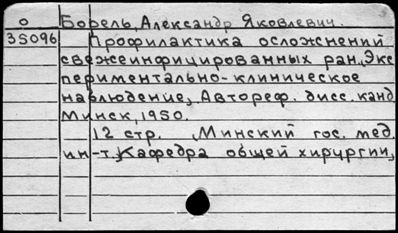 О Борель, Александр Яковлевич.
35096 Профилактика осложнений
свежеинфицированных ран, Экс
периментально-клиническое
наблюдение, Автореф. дисс. канд
Минск, 1950.
12 стр. Минский гос. мед.
ин-т. Кафедра общей хирургии,